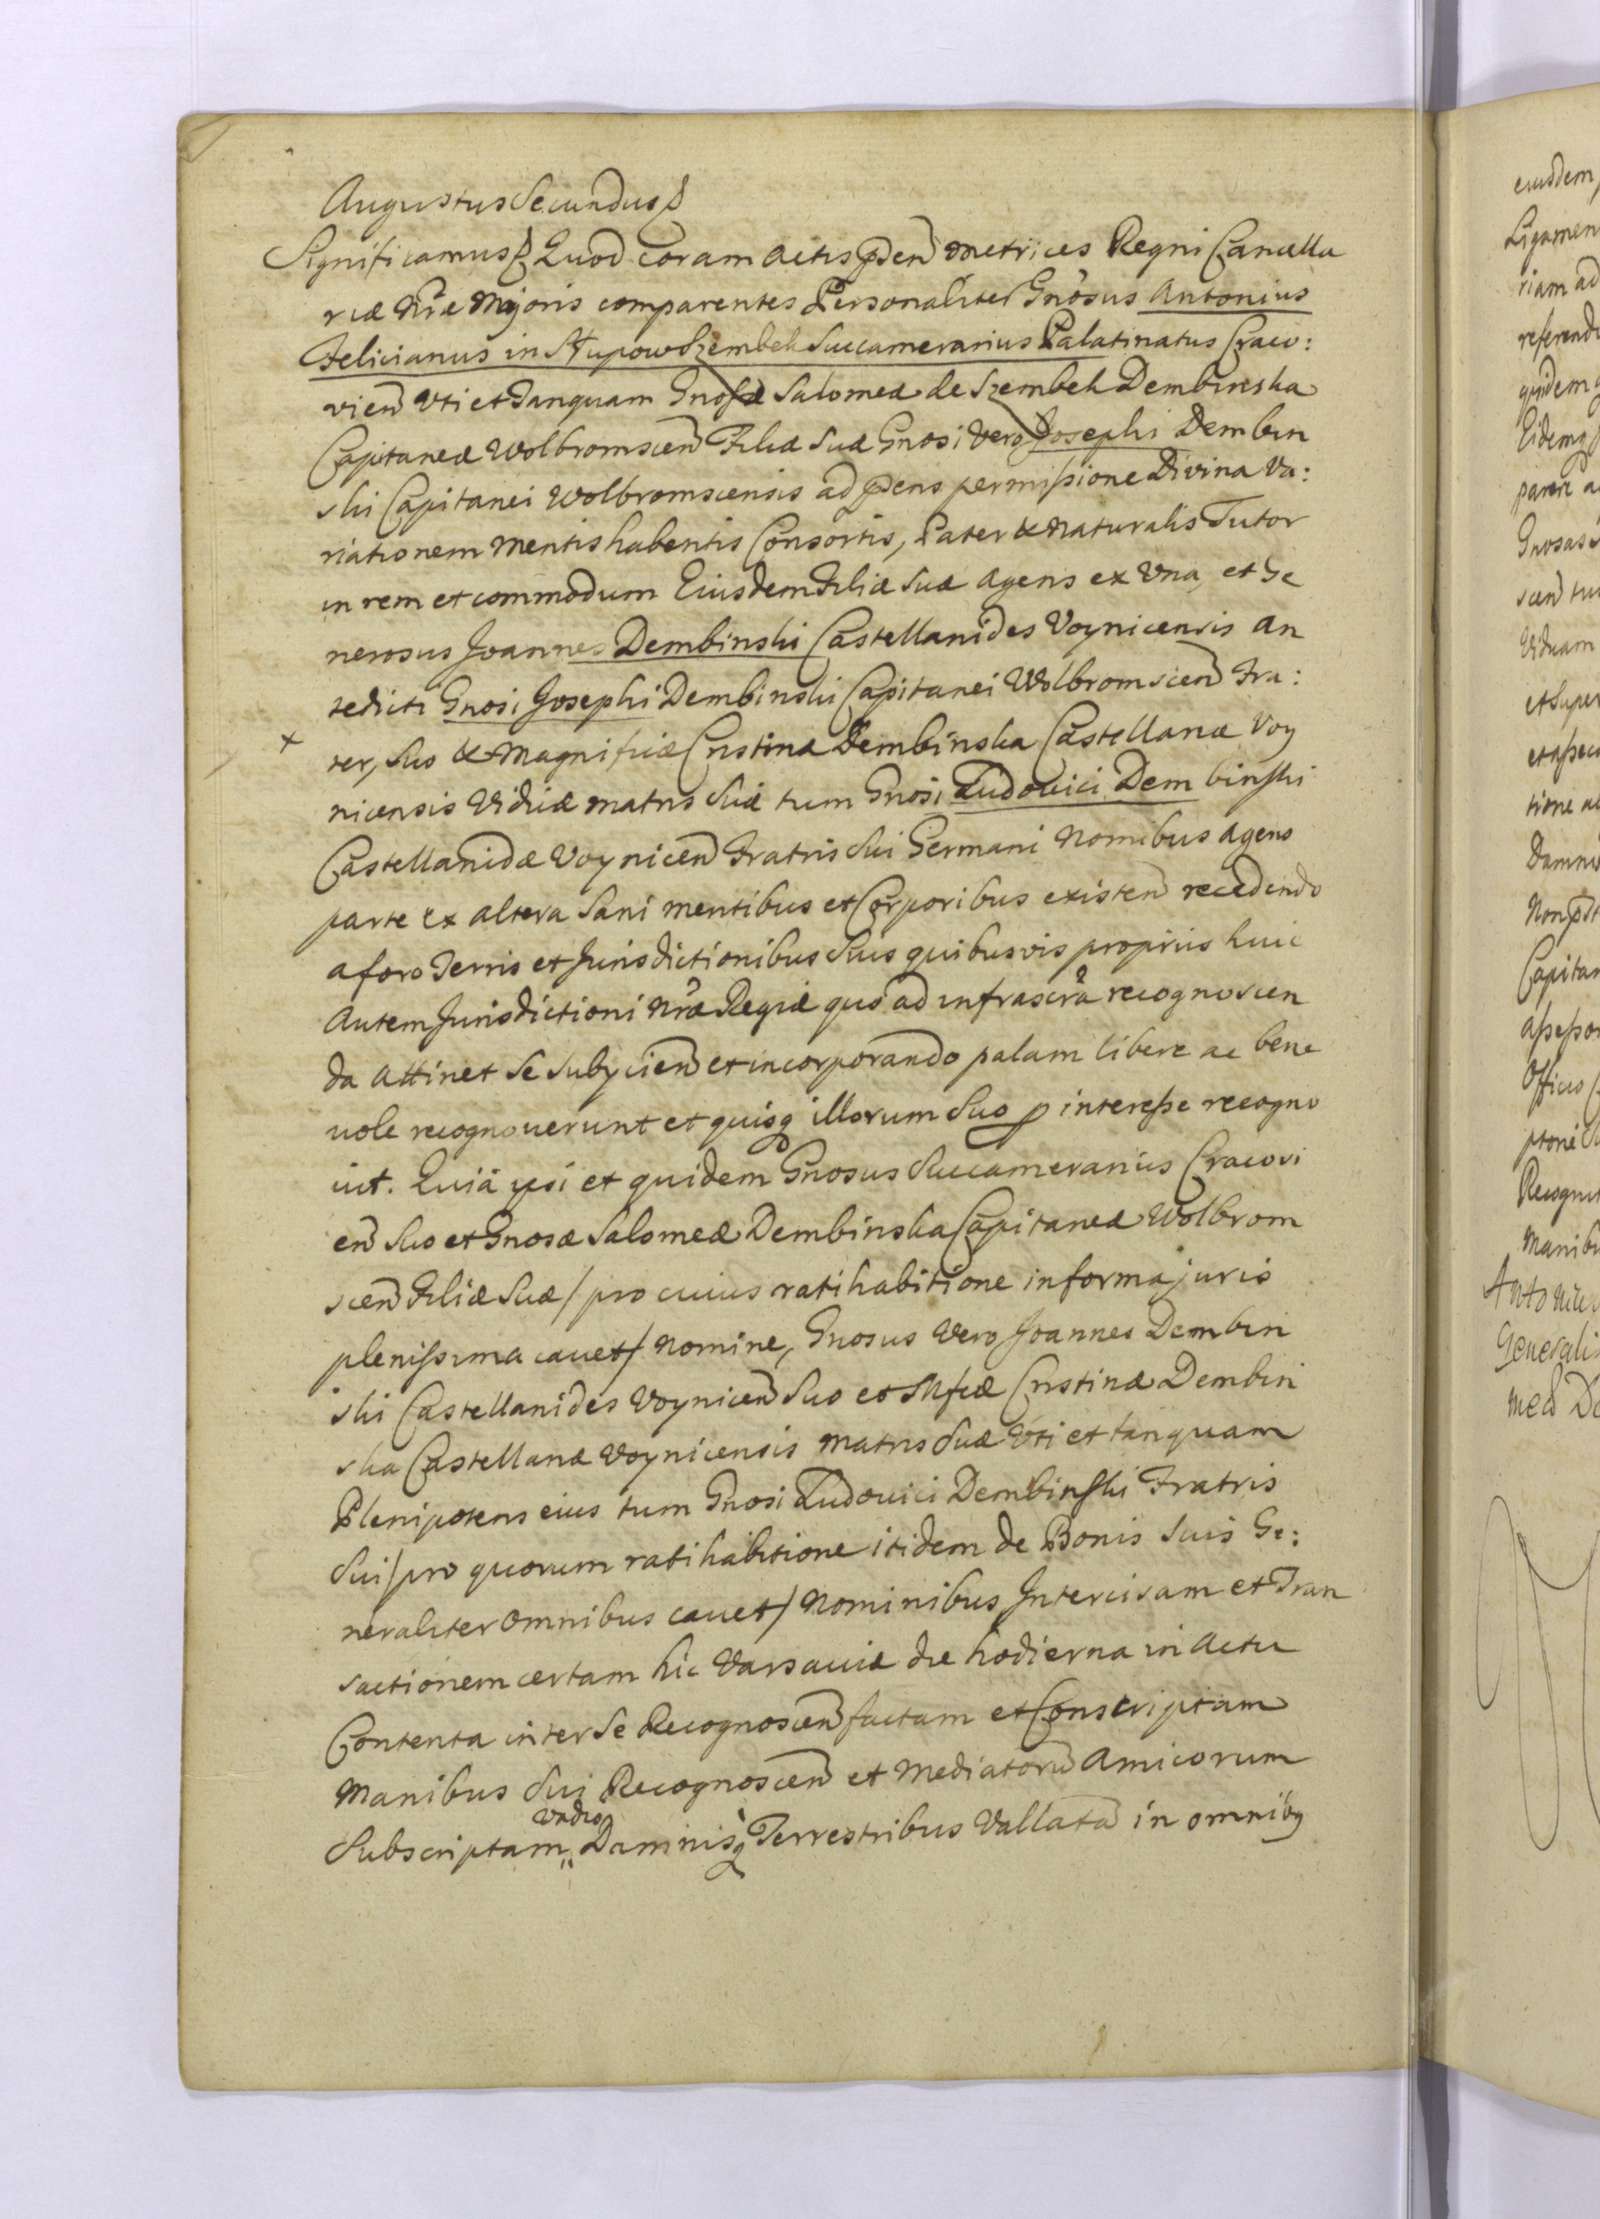 Augustus Secundus
Significamus Quod coram actis p̃sen̄ Metrices Regni Cancella
riæ Nr̃æ Majoris comparentes Personaliter Gnosus Antonius
Felicianus in Słupow Szembek Succamerarius Palatinatus Craco:
vien̄ Uti et Tanquam Gnosæ Salomeæ de Szembek Dembinska
Capitaneæ Wolbromscen̄ Filiæ Suæ Gnosi Vero Josephi Dembin
ski Capitanei Wolbromscensis ad p̃sens permissione Divina Va:
riationem Mentis habentis Consortis, Pater & Naturalis Tutor
in rem et commodum Eiusdem Filiæ Suæ Agens ex Una, et Ge
nerosus Joannes Dembinski Castellanides Voynicensis An
tedicti Gnosi Josephi Dembinski Capitanei Wolbromscen̄ Fra:
ter, Suo & Magnificæ Cristinæ Dembinska Castellanæ Voy
nicensis Viduæ Matris Suæ tum Gnosi Ludovici Dem binski
Castellanidæ Voynicen̄ Fratris Sui Germani Nomibus Agens
parte ex altera Sani mentibus et Corporibus existen̄ recedendo
a foro Terris et Jurisdictionibus Suis quibusvis propriis huic
Autem Jurisdictioni Nr̃æ Regiæ quo ad infrascr̃a recognoscen
da Attinet Se Subycien̄ et incorporando palam libere ac bene
uole recognouerunt et quisq illorum Suo p interesse recogno
uit. Quia ypsi et quidem Gnosus Succamerarius Cracovi
en̄ Suo et Gnosæ Salomeæ Dembinska Capitaneæ Wolbrom
scen̄ Filiæ Suæ / pro cuius ratihabitione in forma juris
plenissima cauet / Nomine, Gnosus Vero Joannes Dembin
ski Castellanides Voynicen̄ Suo et Mficæ Cristinæ Dembin
ska Castellanæ Voynicensis Matris Suæ Uti et tanquam
Plenipotens eius tum Gnosi Ludouici Dembinski Fratris
Sui / pro quorum ratihabitione itidem de Bonis Suis Ge:
neraliter Omnibus cauet / Nominibus Intercisam et Tran
sactionem certam hic Varsauiæ die hodierna in Actu
Contenta inter Se Recognoscen̄ factam et Conscriptam
Manibus Sui Recognoscen̄ et Mediatorū Amicorum
Vadio
Subscriptam,, Damnisq Terrestribus Vallatā in omnibq
eiusdem
Ligamen
riam ad
referend
quidem
Eidemq
parere a
Gnosas
scen̄ tu
Viduam
et Super
et assecu
tione a
Damni
Non p̃st
Capitan
assessor
Officio
ptone
Recogni
Manibu
Antoniu
Generali